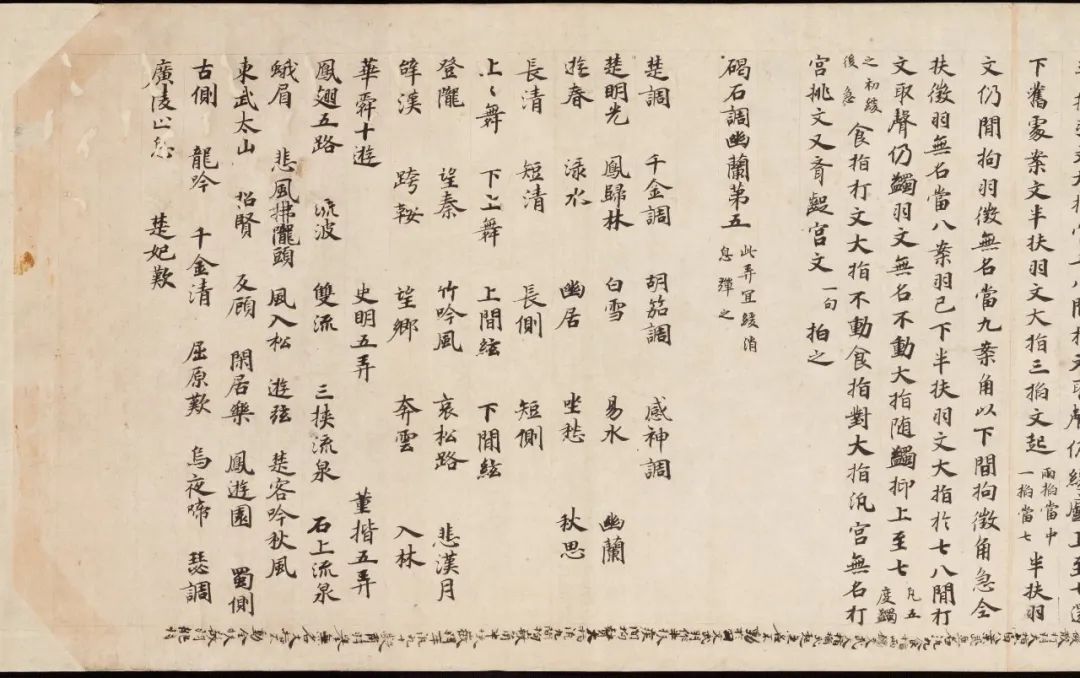 下舊處案文半扶羽文大指三搯文起兩搯當中一搯當七半扶羽
文仍閒拘羽徵無名當九案角以下閒拘徵角急全
扶徵羽無名當八案羽已下半扶羽文大指扵七八閒打
文取聲仍蠲羽文無名不動大指随蠲抑上至七凡五度蠲
之初緩後急食指打文大指不動食指對大指汎宮無名打
宮桃文又齊齪宮文一句拍之
碣石調幽蘭第五此弄宜緩消息彈之
楚調 千金調 胡笳調 感神調
楚明光 鳳歸林 白雪 易水 幽蘭
遊春 淥水 幽居 坐愁 秋思
長清 短清 長側 短側
上〻舞 下上舞 上閒絃 下閒絃
登隴 望秦 竹吟風 哀松路 悲漢月
辭漢 跨鞍 望鄉 奔雲 入林
華舜十遊 史明五弄 董揩五弄
鳳翅五路 流波 雙流 三挾流泉 石上流泉
蛾眉 悲風拂隴頭 風入松 遊弦 楚客吟秋風
東武太山 招賢 反顧 閑居樂 鳳遊園 蜀側
古側 龍吟 千金清 屈原歎 烏夜啼 瑟調
廣陵止息 楚妃歎